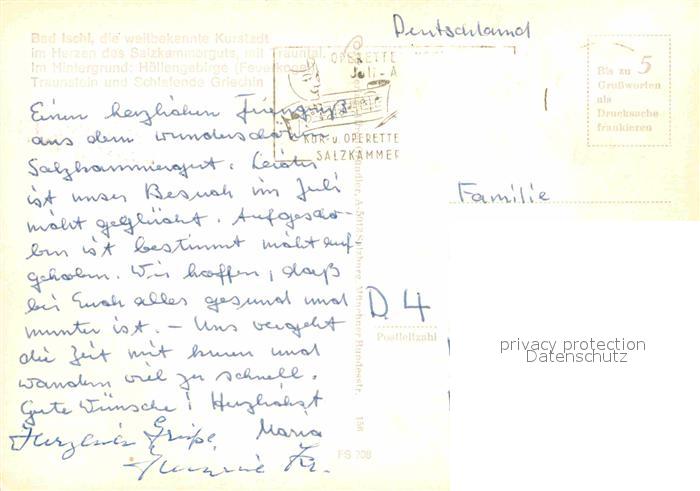 Deutschland
Bad Ischl, die weltbekannte Kurstadt
im Herzen des Salzkammerguts, mit Trauntal.
Im Hintergrund: Höllengebirge (Feuerkogel)
Traunstein und Schlafende Griechin
OPERETTE
Juli - A
KUR- u. OPERETTE
SALZKAMMER
Bis zu 5
Grußworten
als
Drucksache
frankieren
Einen herzlichen Feriengruß
aus dem wunderschönen
Salzkammergut. Leider
ist unser Besuch im Juli
nicht geglückt. Aufgescho-
ben ist bestimmt nicht auf
gehoben. Wir hoffen, daß
bei Euch alles gesund und
munter ist. – Uns vergeht
die Zeit mit kuren und
wandern viel zu schnell.
Gute Wünsche! Herzlichst
Maria
Herzliche Grüße
Familie
D 4
Postleitzahl
Salzburg, Münchner Bundesstr. 156
FS 708
privacy protection
Datenschutz